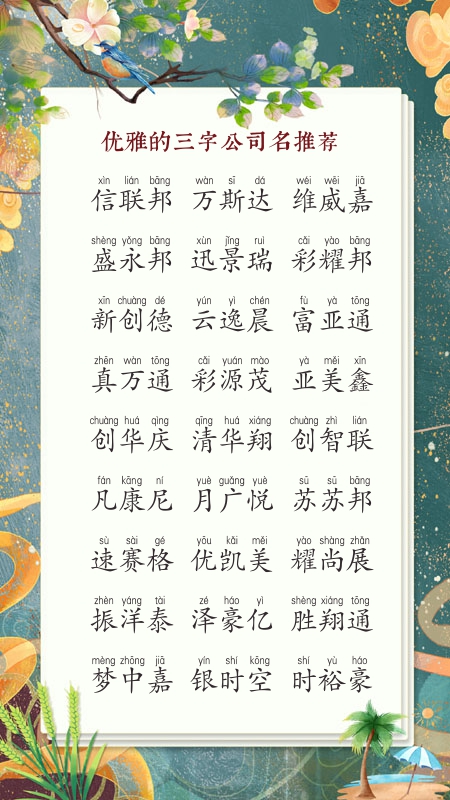 优雅的三字公司名推荐
xìn lián bāng wàn sī dá wéi wēi jiā
信联邦 万斯达 维威嘉
shèng yǒng bāng xùn jǐng ruì cǎi yào bāng
盛永邦 迅景瑞 彩耀邦
xīn chuàng dé yún yì chén fù yà tōng
新创德 云逸晨 富亚通
zhēn wàn tōng cǎi yuán mào yà měi xīn
真万通 彩源茂 亚美鑫
chuàng huá qìng qīng huá xiáng chuàng zhì lián
创华庆 清华翔 创智联
fán kāng ní yuè guǎng yuè sū sū bāng
凡康尼 月广悦 苏苏邦
sù sài gé yōu kǎi měi yào shàng zhǎn
速赛格 优凯美 耀尚展
zhèn yáng tài zé háo yì shèng xiáng tōng
振洋泰 泽豪亿 胜翔通
mèng zhōng jiā yín shí kōng shí yù háo
梦中嘉 银时空 时裕豪